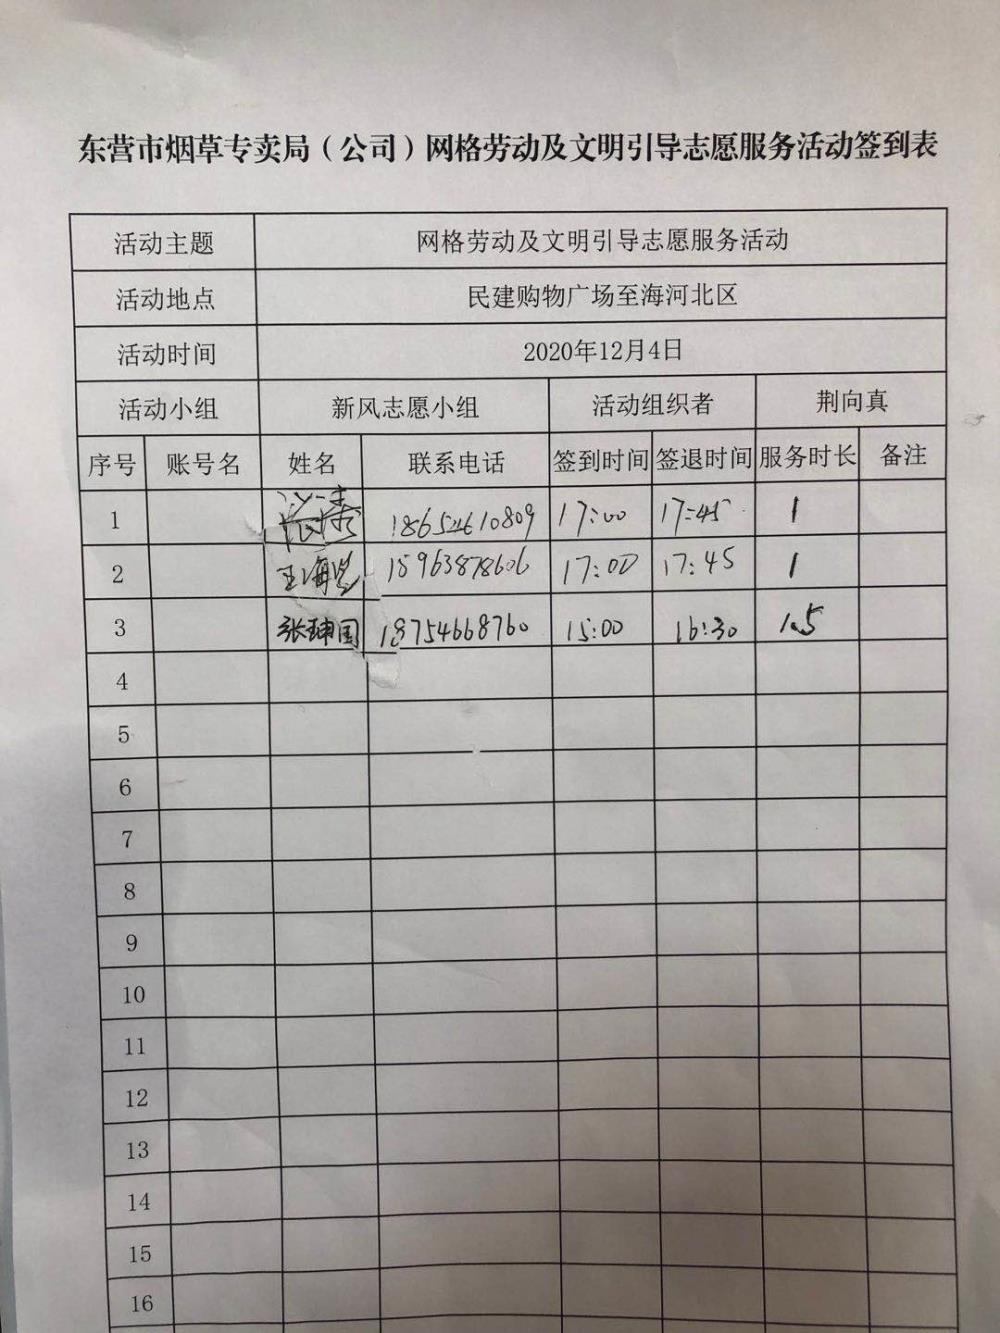 东营市烟草专卖局（公司）网格劳动及文明引导志愿服务活动签到表
活动主题 网格劳动及文明引导志愿服务活动
活动地点 民建购物广场至海河北区
活动时间 2020年12月4日
活动小组 新风志愿小组 活动组织者 荆向真
序号 账号名 姓名 联系电话 签到时间 签退时间 服务时长 备注
1 17:00 17:45 1
2 15963878606 17:00 17:45 1
3 18754668760 15:00 16:30 1.5
4
5
6
7
8
9
10
11
12
13
14
15
16